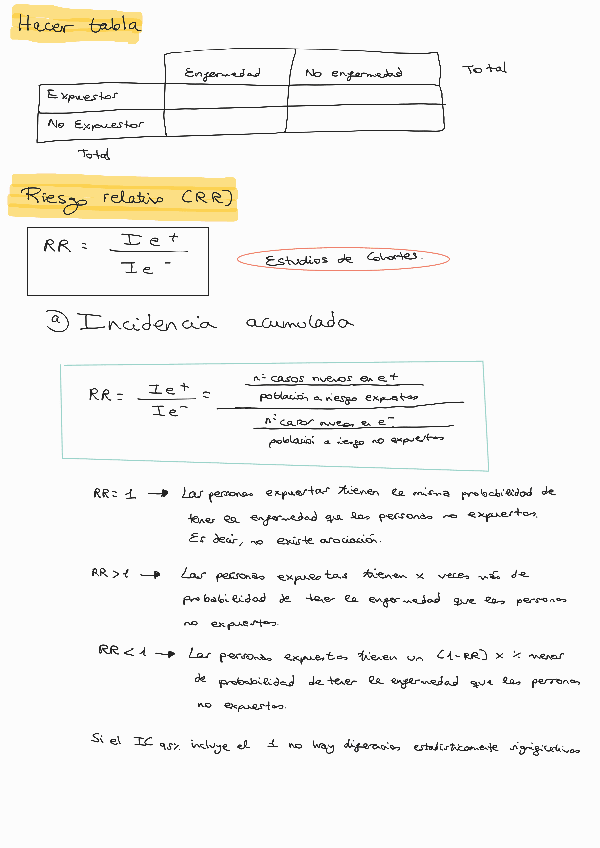 Hacer tabla
Enfermedad No enfermedad Total
Expuestos
No Expuestos
Total
Riesgo relativo (RR)
RR = Ie+ / Ie-
Estudios de Cohortes.
a) Incidencia acumulada
nº casos nuevos en e+
RR = Ie+ / Ie- = población a riesgo expuestos
nº casos nuevos en e-
población a riesgo no expuestos
RR = 1 → Las personas expuestas tienen la misma probabilidad de
tener la enfermedad que las personas no expuestas.
Es decir, no existe asociación.
RR > 1 → Las personas expuestas tienen x veces más de
probabilidad de tener la enfermedad que las personas
no expuestas.
RR < 1 → Las personas expuestas tienen un (1-RR) x % menos
de probabilidad de tener la enfermedad que las personas
no expuestas.
Si el IC 95% incluye el 1 no hay diferencias estadísticamente significativas